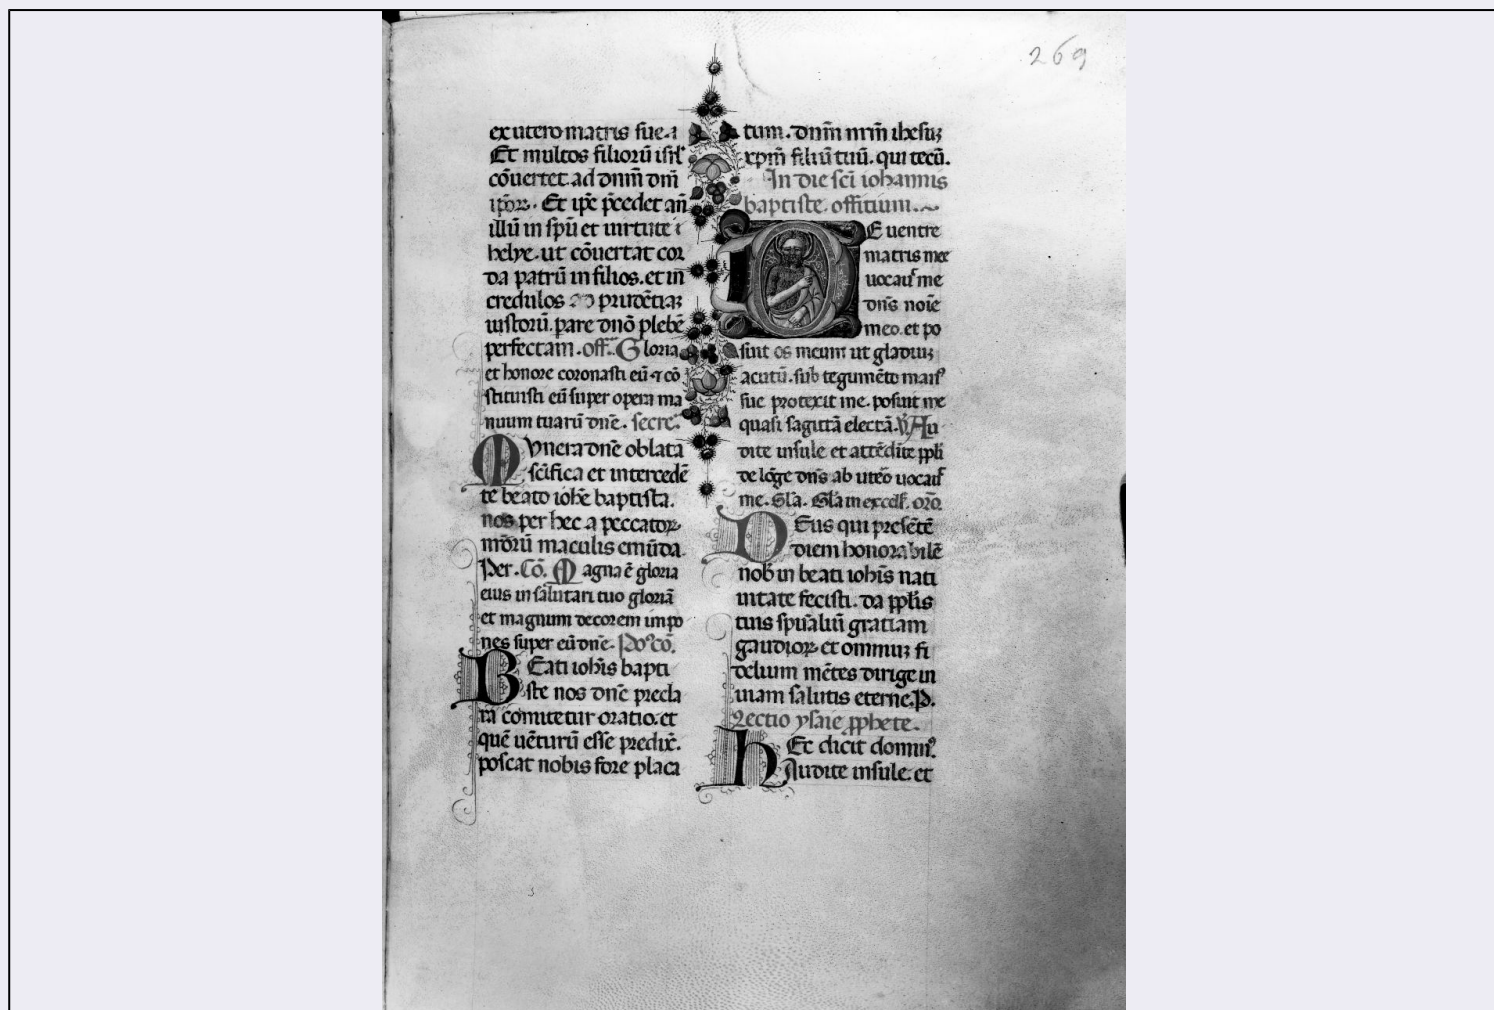 269
ex utero matris sue. ⁊
Et multos filiorū isrl̄
cōuertet. ad dn̄m dm̄
ip̄oꝝ. Et ip̄e p̄cedet an̄
illū in sp̄ū et uirtute
helye. ut cōuertat cor
da patrū in filios. et in
credulos ad prudētiaꝫ
iustorū. parare dn̄o plebē
perfectam. off. Gloria
et honore coronasti eū ⁊ cō
stituisti eū super opera ma
nuum tuarū dn̄e. secre.
Munera dn̄e oblata
sc̄ifica et intercedē
te beato ioh̄e baptista.
nos per hec a peccatoꝝ
nr̄orū maculis emūda.
Per. Cō. Magna ē gloria
eius in salutari tuo gloriā
et magnum decorem impo
nes super eū dn̄e. Po'cō.
Beati ioh̄is bapti
ste nos dn̄e precla
ra comitetur oratio. et
quē uēturū esse predix̄.
poscat nobis fore placa
tum. dn̄m nr̄m ihesuꝫ
xp̄m filiū tuū. qui tecū.
In die sc̄i iohannis
baptiste. offitium.
De uentre
matris mee
uocau᷑ me
dn̄s noīe
meo. et po
suit os meum ut gladiuꝫ
acutū. sub tegumēto man᷒
sue protexit me. posuit me
quasi sagittā electā. V̄. Au
dite insule et attēdite pp̄li
de lōge dn̄s ab utēo uocau᷑
me. Gl̄a. Gl̄a in excels̄. or̄o.
Deus qui presētē
diem honorabilē
nob̄ in beati ioh̄is nati
uitate fecisti. da pp̄lis
tuis sp̄ualiū gratiam
gaudioꝝ et omniuꝫ fi
delium mētes dirige in
uiam salutis eterne. P.
Lectio ysaie pp̄hete.
Hec dicit domin᷒
Audite insule. et